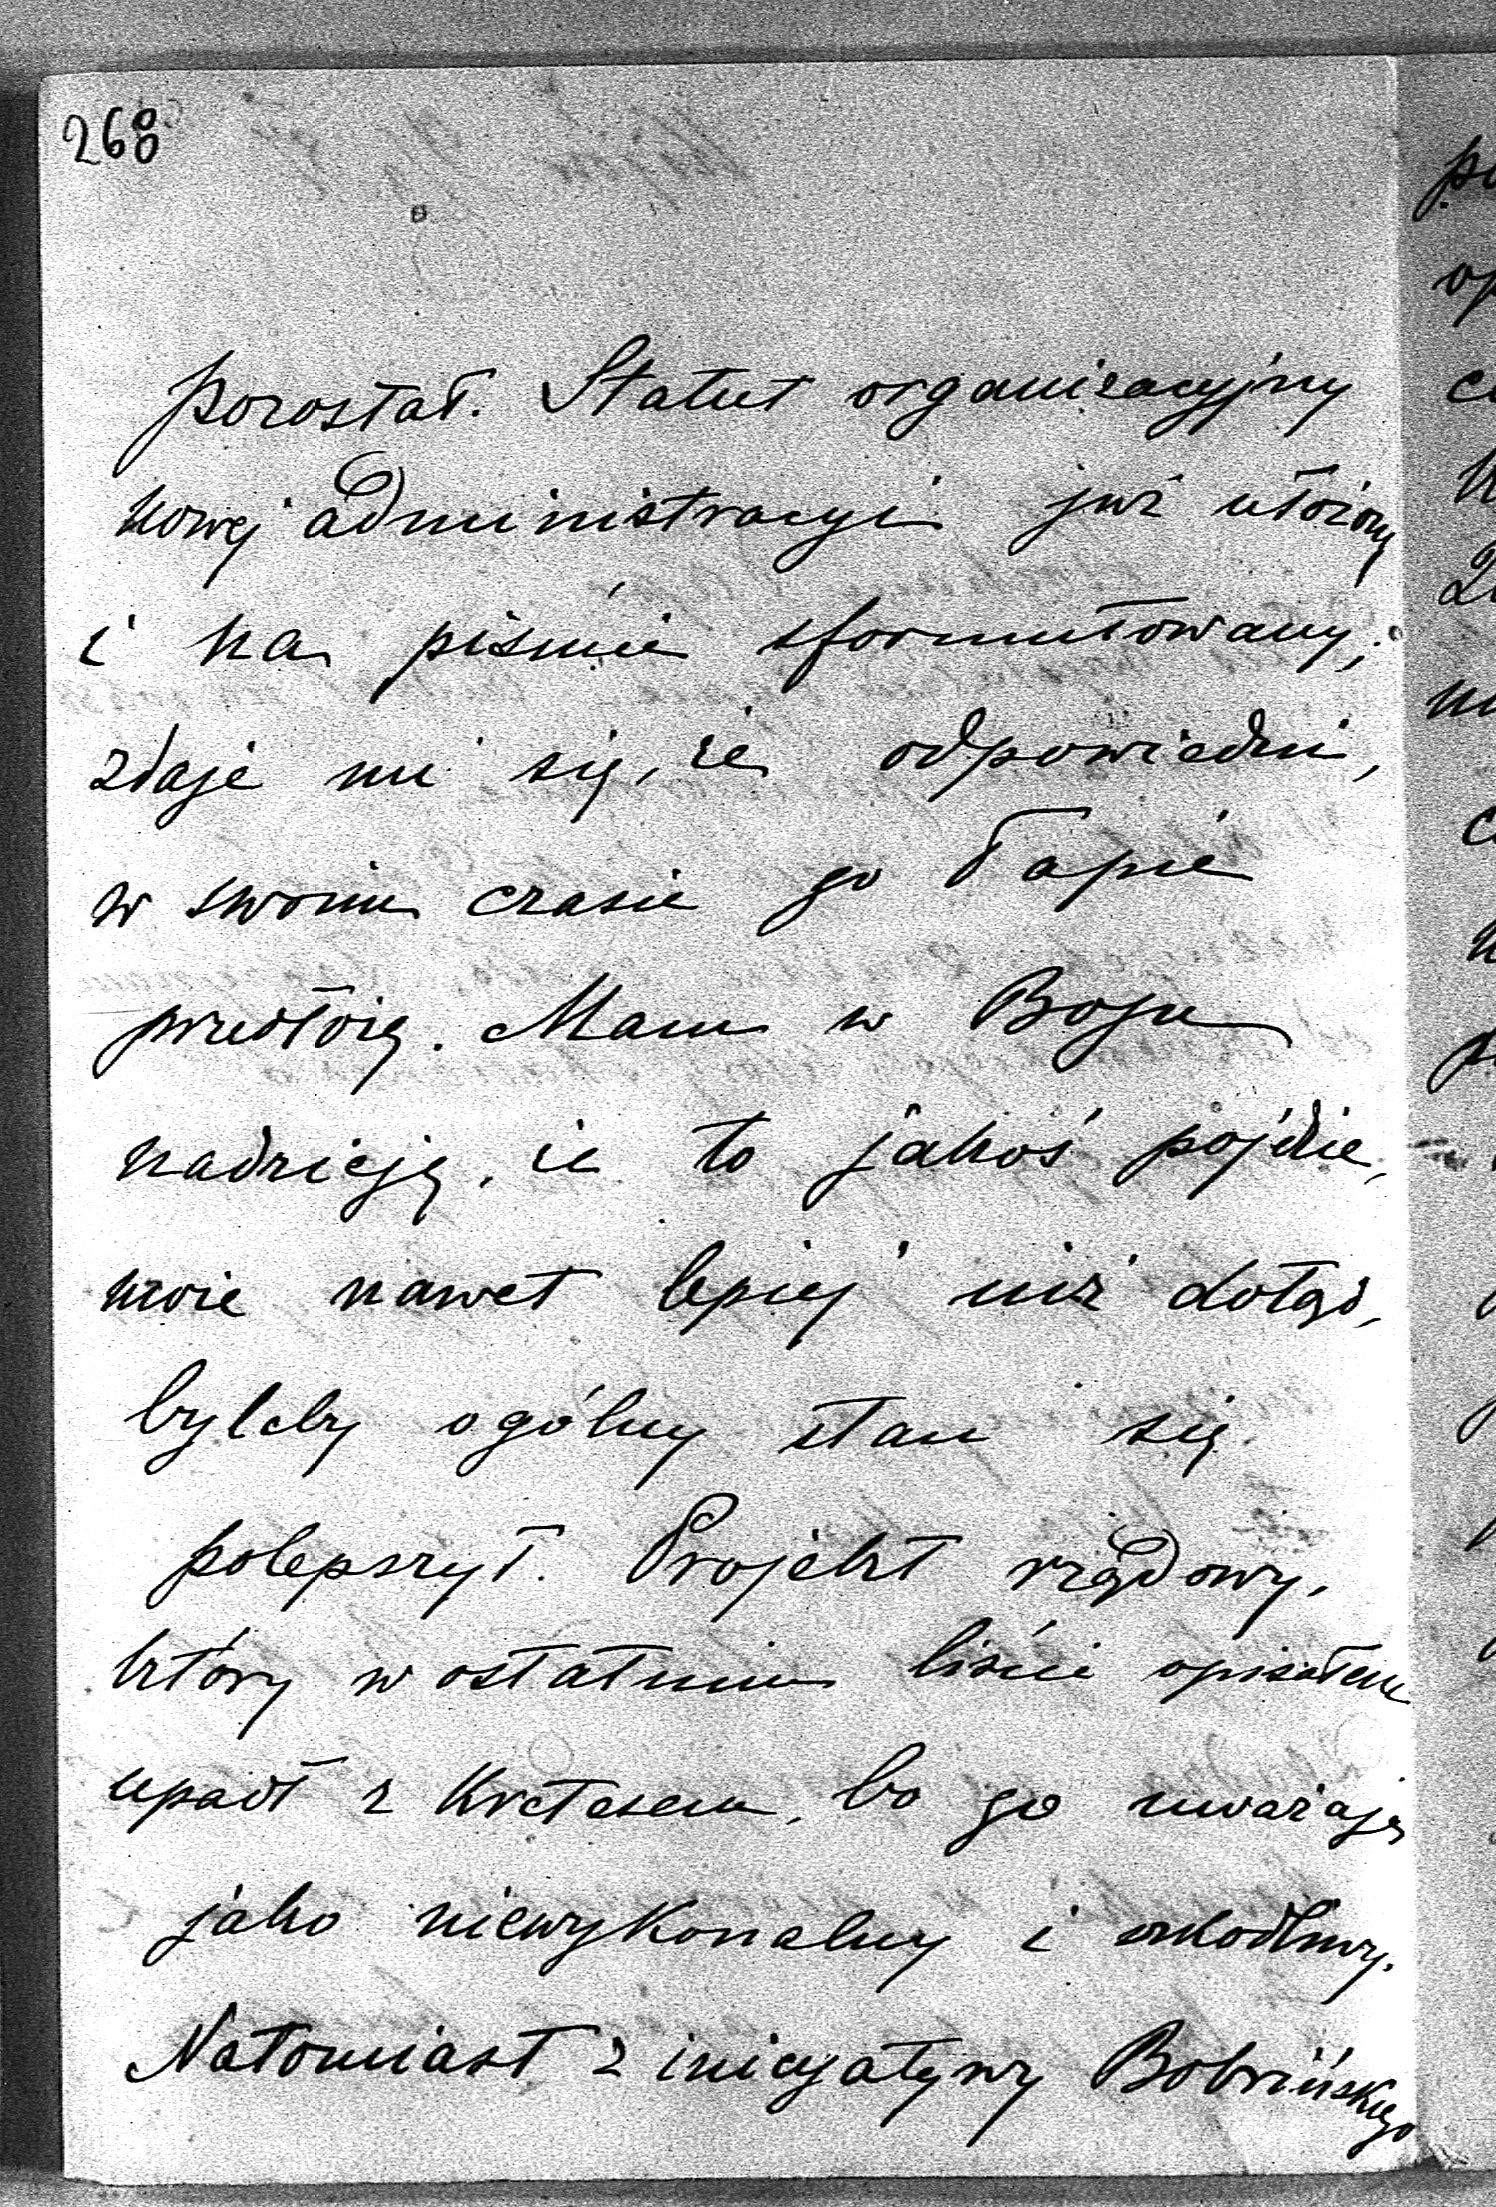 268
pozostał. Statut organizacyjny
nowej administracyi już ułożony
i na piśmie sformułowany;
zdaje mi się, że odpowiedni,
w swoim czasie go Tapie
przedłożę. Mam w Bogu
nadzieję, że to jakoś pójdzie,
może nawet lepiej niż dotąd,
byleby ogólny stan się
polepszył. Projekt rządowy,
który w ostatnim liście opisałem
upadł z kretesem, bo go uważają
jako niewykonalny i szkodliwy.
Natomiast z inicyatywy Bobrińskiego